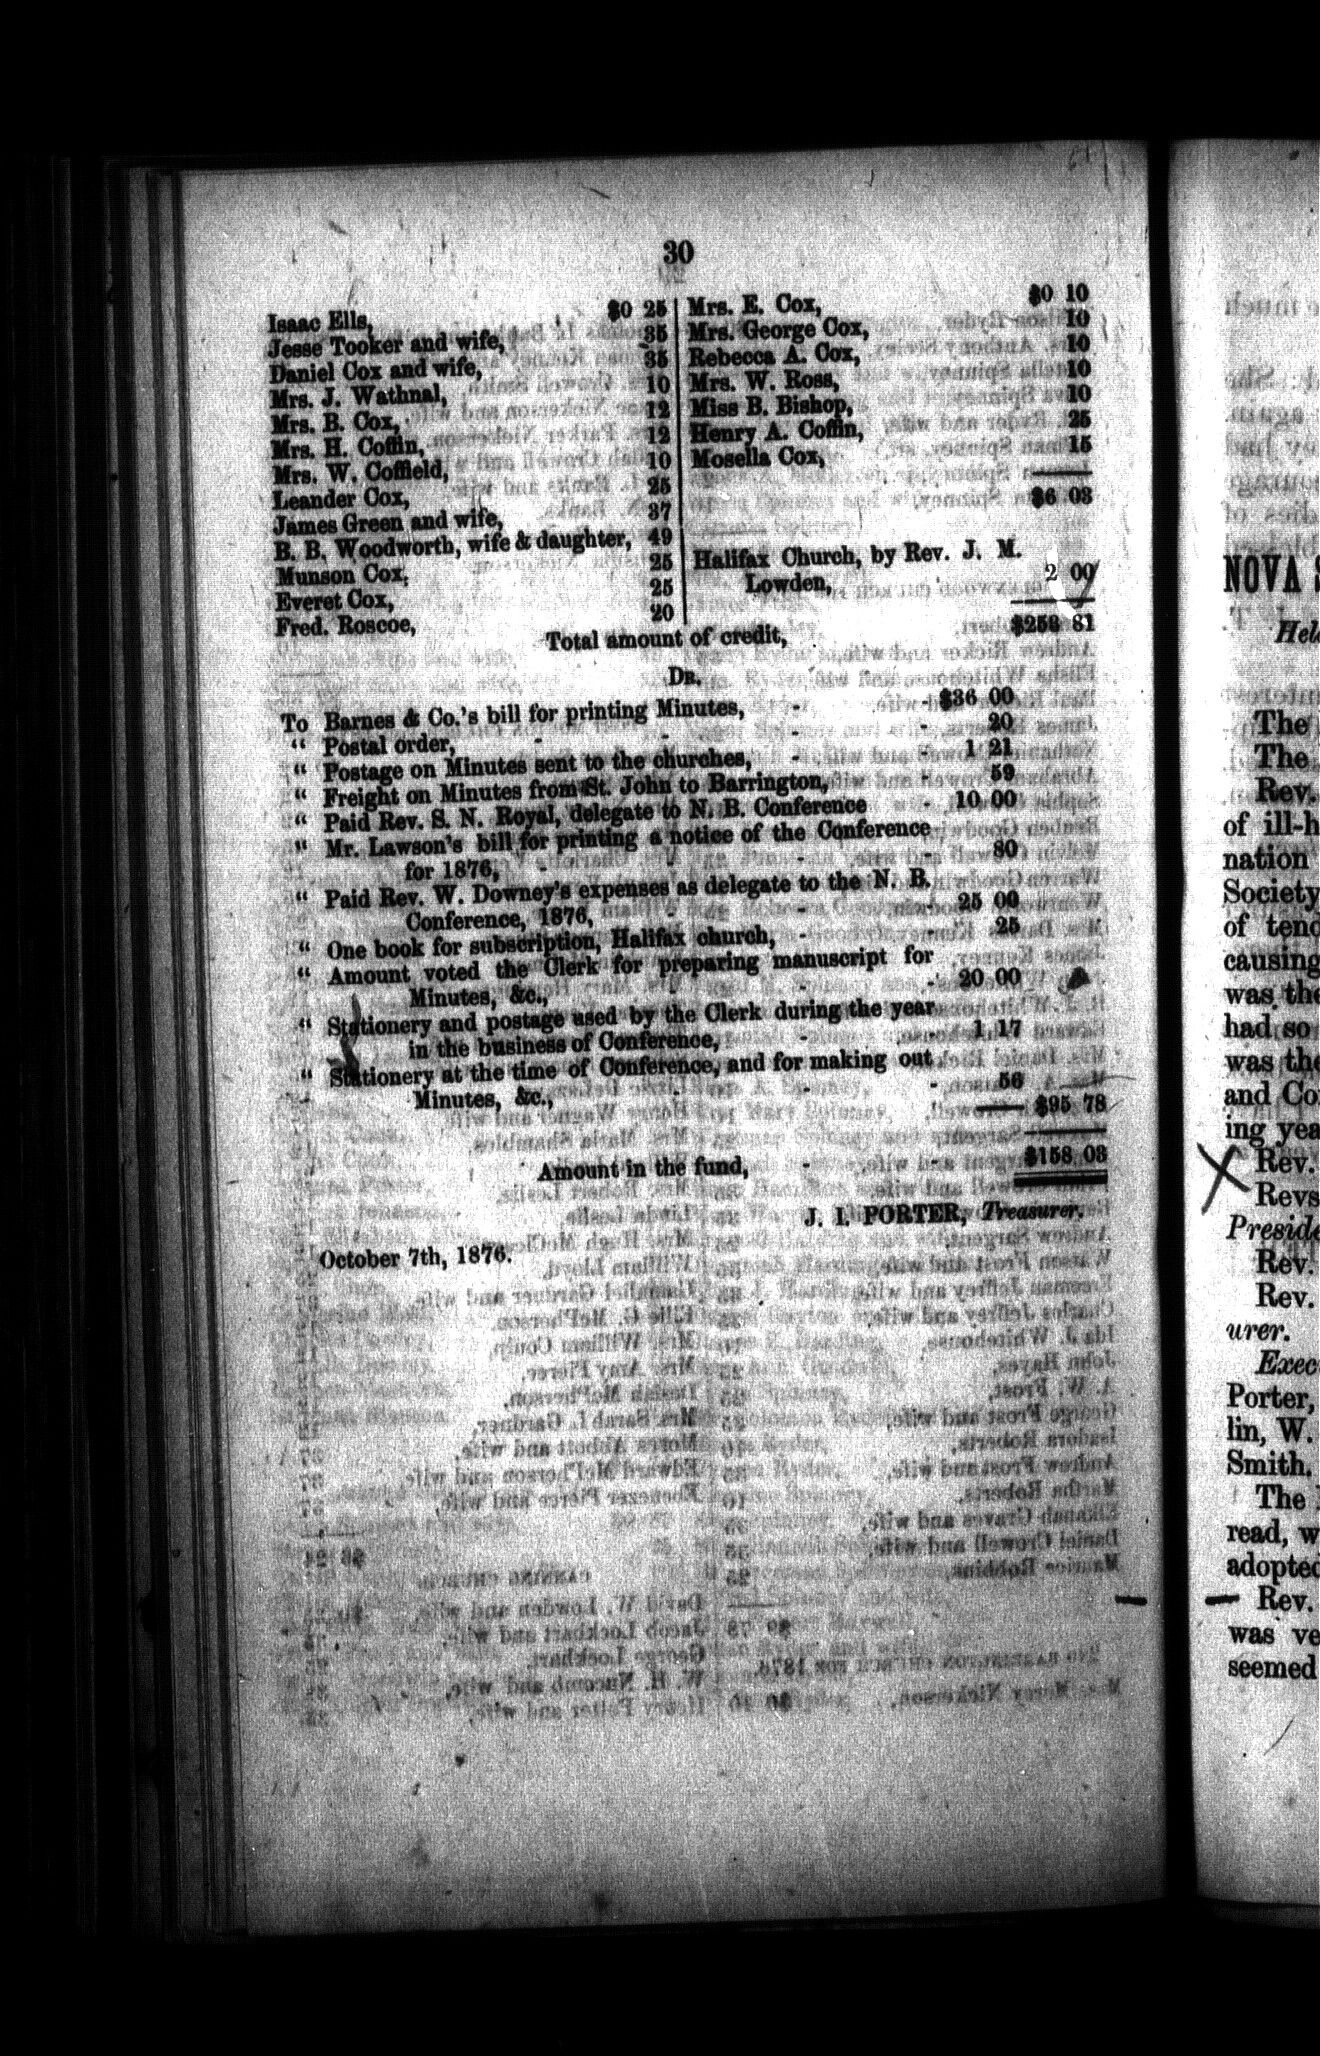 30
Isaac Ells, $0 25
Jesse Tooker and wife, 35
Daniel Cox and wife, 35
Mrs. J. Wathnal, 10
Mrs. B. Cox, 12
Mrs. H. Coffin, 12
Mrs. W. Coffield, 10
Leander Cox, 25
James Green and wife, 37
B. B. Woodworth, wife & daughter, 49
Munson Cox, 25
Everet Cox, 25
Fred. Roscoe, 20
Mrs. E. Cox, $0 10
Mrs. George Cox, 10
Rebecca A. Cox, 10
Mrs. W. Ross, 10
Miss B. Bishop, 10
Henry A. Coffin, 25
Mosella Cox, 15
$6 03
Halifax Church, by Rev. J. M.
Lowden, 2 00
Total amount of credit, $253 81
DR.
To Barnes & Co.'s bill for printing Minutes, - - $36 00
" Postal order, - - - - 20
" Postage on Minutes sent to the churches, - - 1 21
" Freight on Minutes from St. John to Barrington, - 59
" Paid Rev. S. N. Royal, delegate to N. B. Conference - 10 00
" Mr. Lawson's bill for printing a notice of the Conference
for 1876, - - - - 80
" Paid Rev. W. Downey's expenses as delegate to the N. B.
Conference, 1876, - - - 25 00
" One book for subscription, Halifax church, - - 25
" Amount voted the Clerk for preparing manuscript for
Minutes, &c., - - - - 20 00
" Stationery and postage used by the Clerk during the year
in the business of Conference, - - 1 17
" Stationery at the time of Conference, and for making out
Minutes, &c., - - - - 56
$95 78
Amount in the fund, - - $158 03
J. I. PORTER, Treasurer.
October 7th, 1876.
NOVA
The
The
Rev.
of ill-h
nation
Society
of tend
causing
was the
had so
was the
and Co
ing yea
Rev.
Revs
Preside
Rev.
Rev.
urer.
Exec
Porter,
lin, W.
Smith.
The
read, w
adopted
Rev.
was ve
seemed